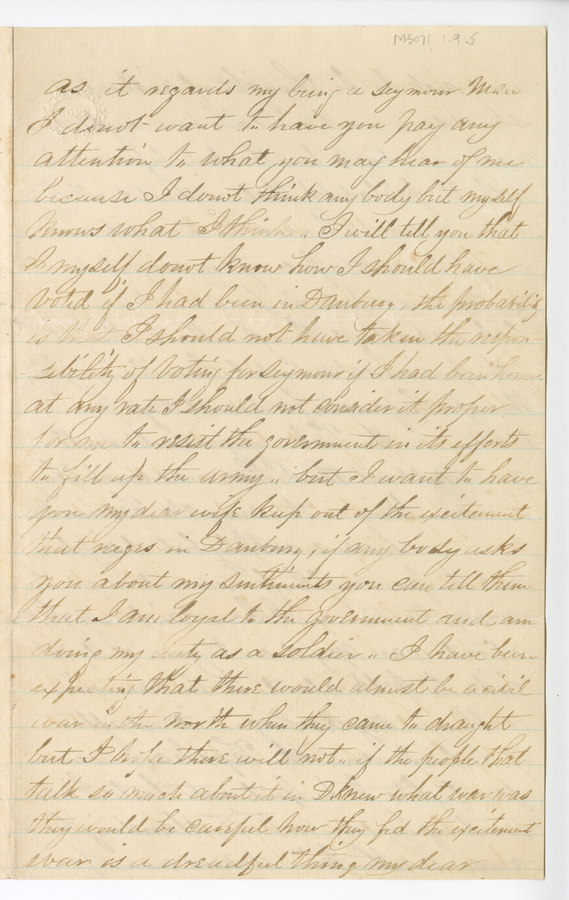 MS071, 1.9.5
as it regards my being a seymour Man
I donot want to have you pay any
attention to what you may hear of me
because I donot think any body but my self
knows what I think,. I will tell you that
I myself donot know how I should have
voted if I had been in Danbury, the probability
is that I should not have taken the respon-
sibility of voting for seymour if I had been home
at any rate I should not consider it proper
for me to resist the government in its efforts
to fill up the army,. but I want to have
you my dear wife keep out of the excitement
that reigns in Danbury, if any body asks
you about my sentiments you can tell them
that I am loyal to the government and am
doing my duty as a soldier,. I have been
expecting that there would almost be a civil
war in the North when they came to draught
but I hope there will not,. if the people that
talk so much about it in D. knew what war was
they would be careful how they fed the excitement
war is a dreadful thing my dear